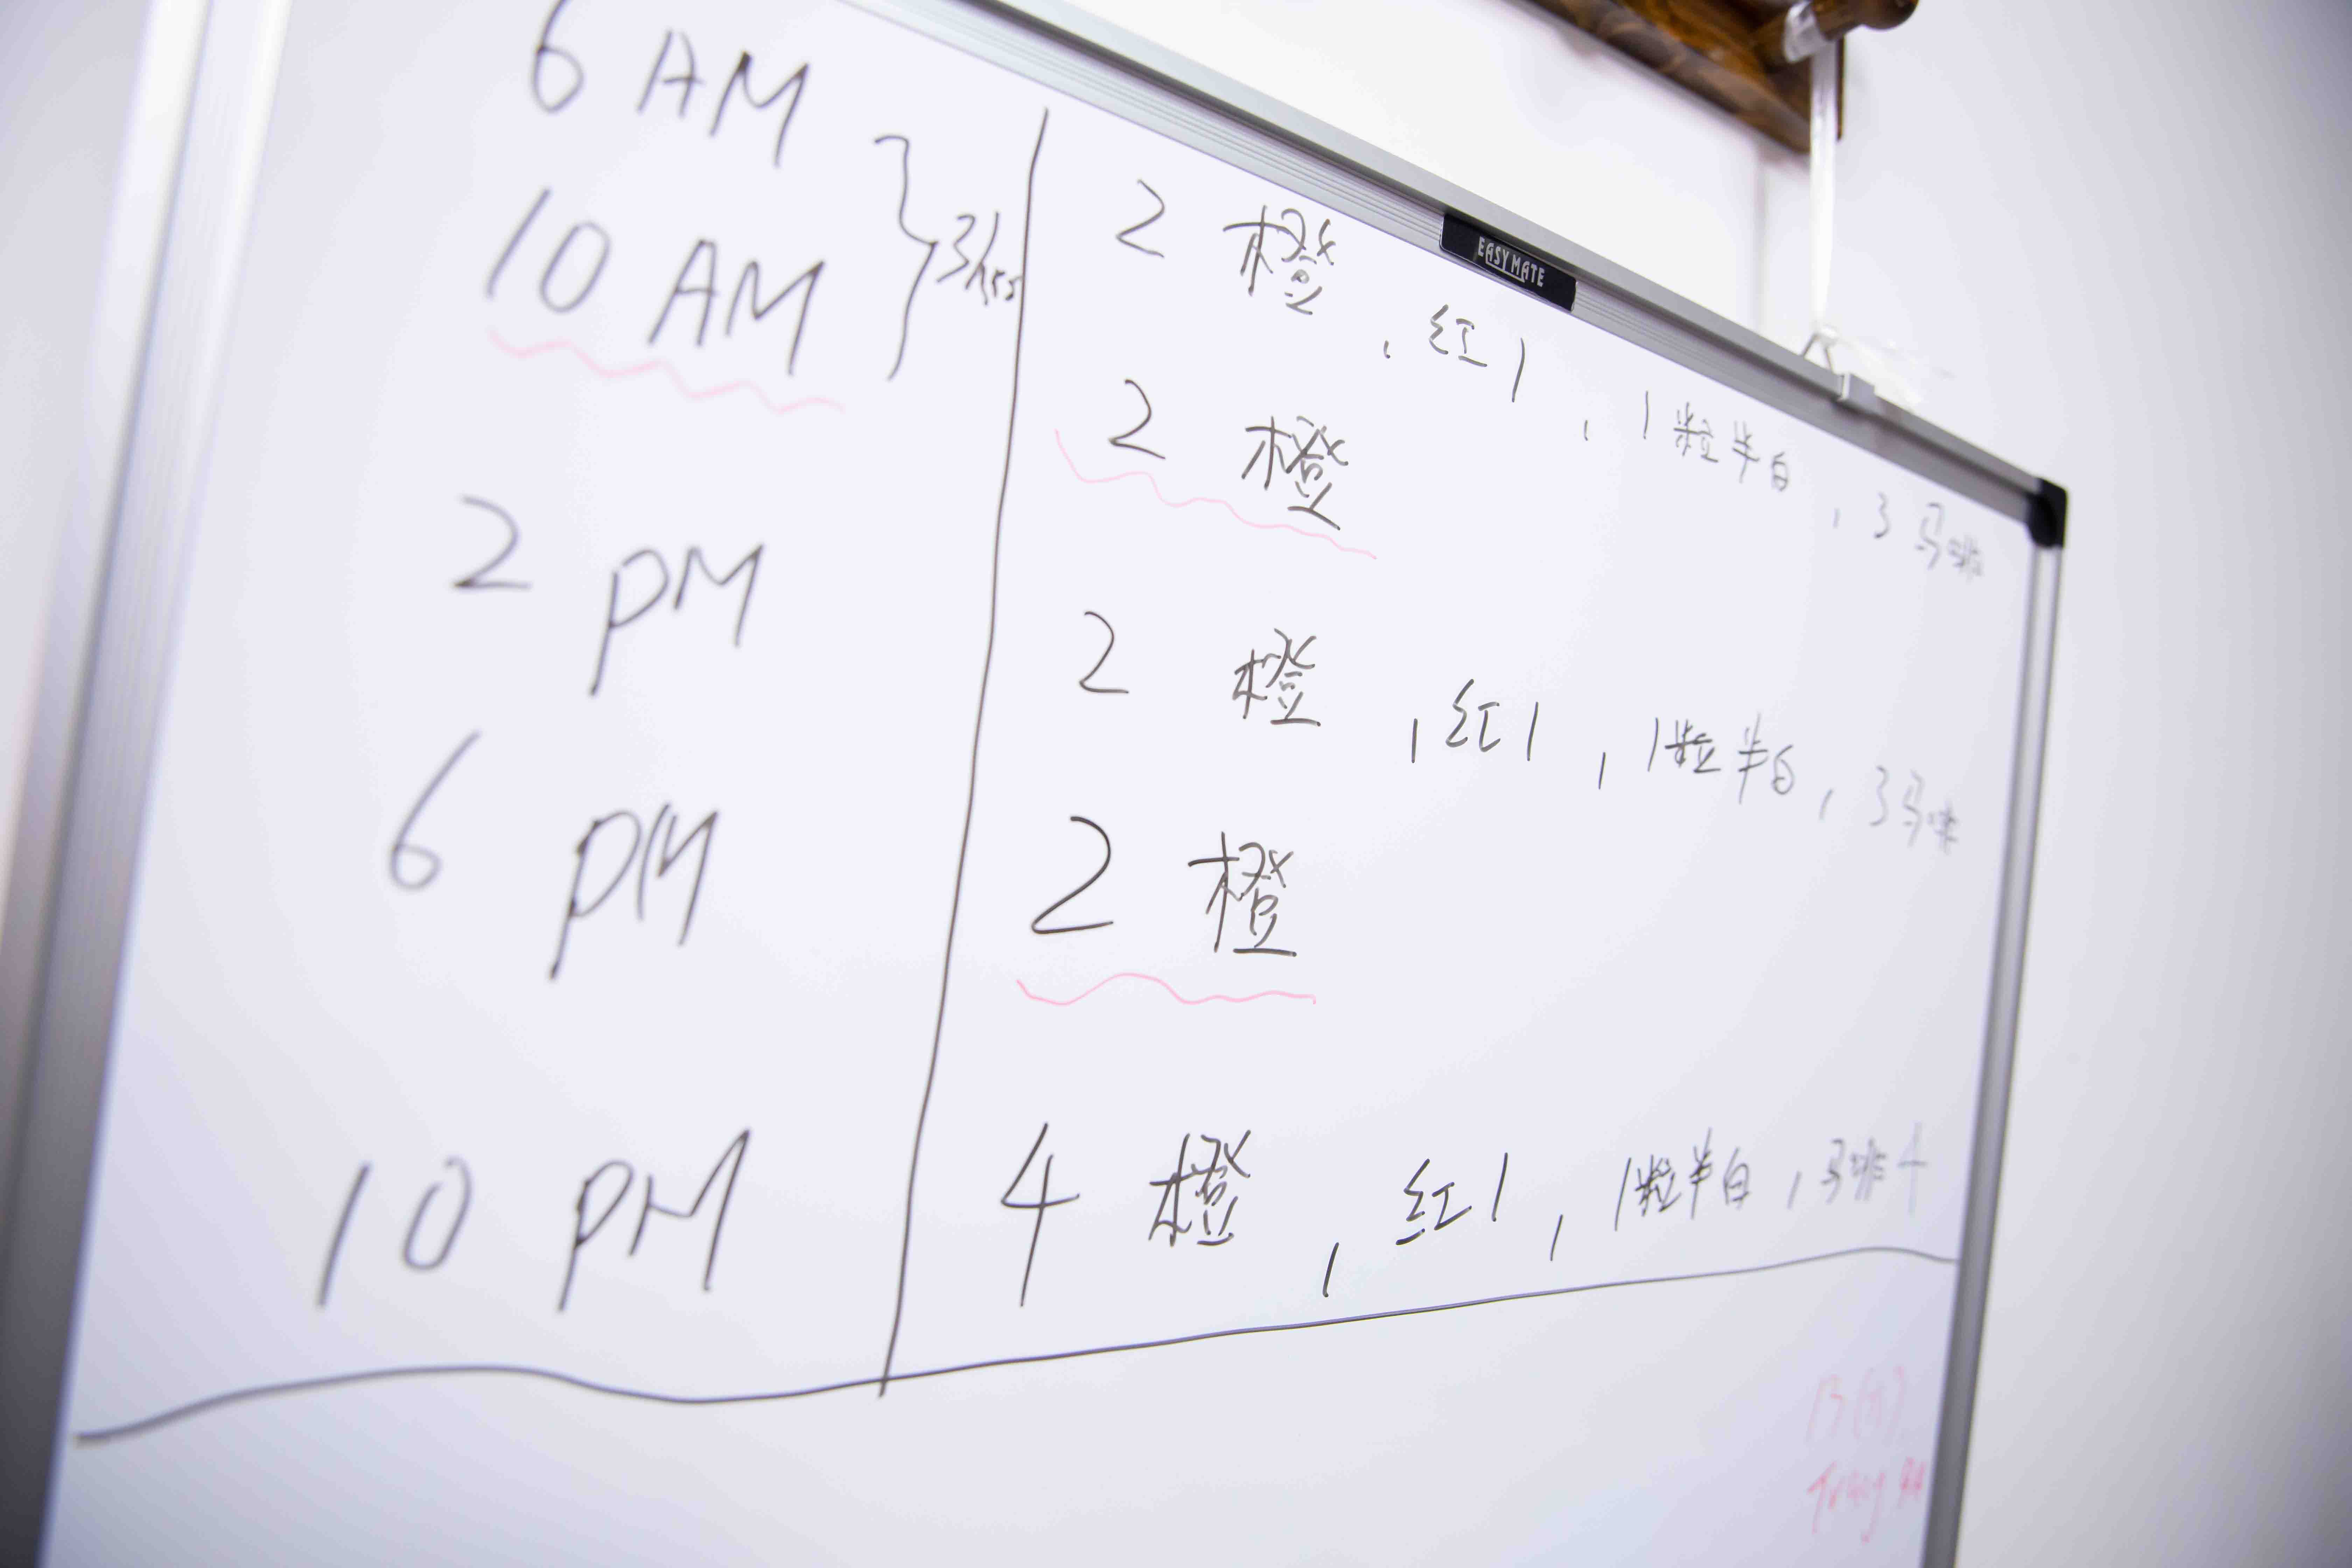 6 AM
10 AM
3hrs
2 PM
6 PM
10 PM
2 橙 , 红1 , 1粒半白 , 3 马啡
2 橙
2 橙 , 红1 , 1粒半白 , 3 马啡
2 橙
4 橙 , 红1 , 1粒半白 , 马啡4
EASY MATE